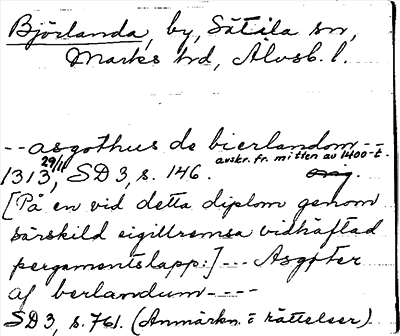 Björlanda, by, Sätila sn,
Marks hd, Älvsb. l.
-- asgothus de bierlandom --
avskr. fr. mitten av 1400-t.
1313 29/11, SD 3, s. 146.
[På en vid detta diplom genom
särskild sigillremsa vidhäftad
pergamentslapp:] --- Asgoter
af berlandum ----
SD 3, s. 761. (Anmärkn. o rättelser)